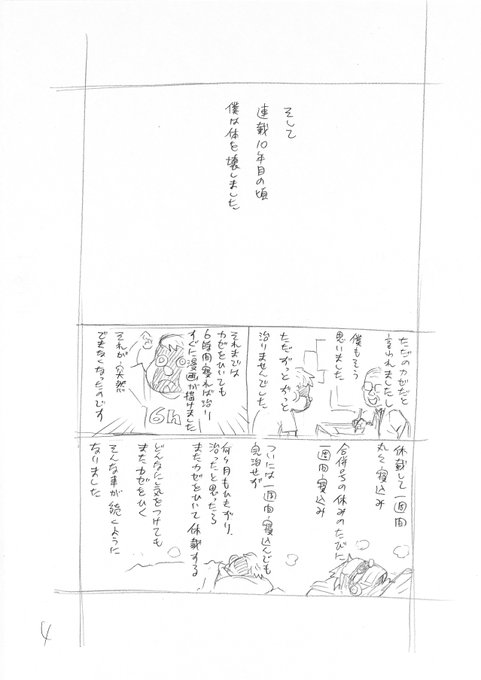 そして
連載10年目の頃
僕は体を壊しました
ただのカゼだと
言われましたし
僕もそう
思いました
ただずっとずっと
治りませんでした
それまでは
カゼをひいても
6時間寝れば治り
すぐに漫画が描けました
6h
それが突然
できなくなったのです
休載して一週間
丸々寝込み
合併号の休みのたびに
一週間寝込み
ついには一週間寝込んでも
完治せず
何ヶ月もひきずり、
治ったと思ったら
またカゼをひいて休載する
どんなに気をつけても
またカゼをひく
そんな事が続くように
なりました
4